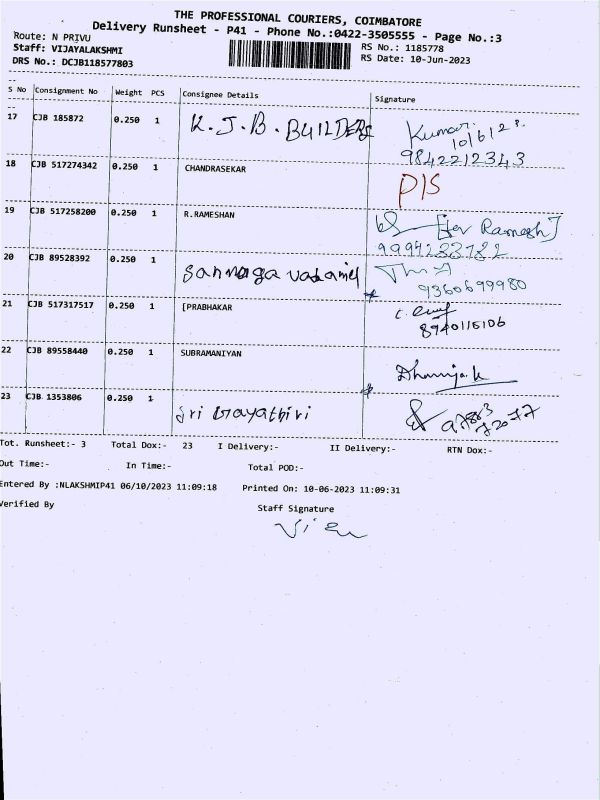 THE PROFESSIONAL COURIERS, COIMBATORE
Delivery Runsheet - P41 - Phone No.:0422-3505555 - Page No.:3
Route: N PRIVU
Staff: VIJAYALAKSHMI
DRS No.: DCJB118577803
RS No.: 1185778
RS Date: 10-Jun-2023
S No Consignment No Weight PCS Consignee Details Signature
17 CJB 185872 0.250 1 K.J.B. BUILDERS Kumar.
10/6/23.
9842212343
18 CJB 517274342 0.250 1 CHANDRASEKAR P/S
19 CJB 517258200 0.250 1 R.RAMESHAN [for Ramesh]
20 CJB 89528392 0.250 1
9360699980
21 CJB 517317517 0.250 1 [PRABHAKAR
8940115106
22 CJB 89558440 0.250 1 SUBRAMANIYAN
23 CJB 1353806 0.250 1 Sri Gayathiri
Tot. Runsheet:- 3 Total Dox:- 23 I Delivery:- II Delivery:- RTN Dox:-
Out Time:- In Time:- Total POD:-
Entered By :NLAKSHMIP41 06/10/2023 11:09:18 Printed On: 10-06-2023 11:09:31
Verified By Staff Signature